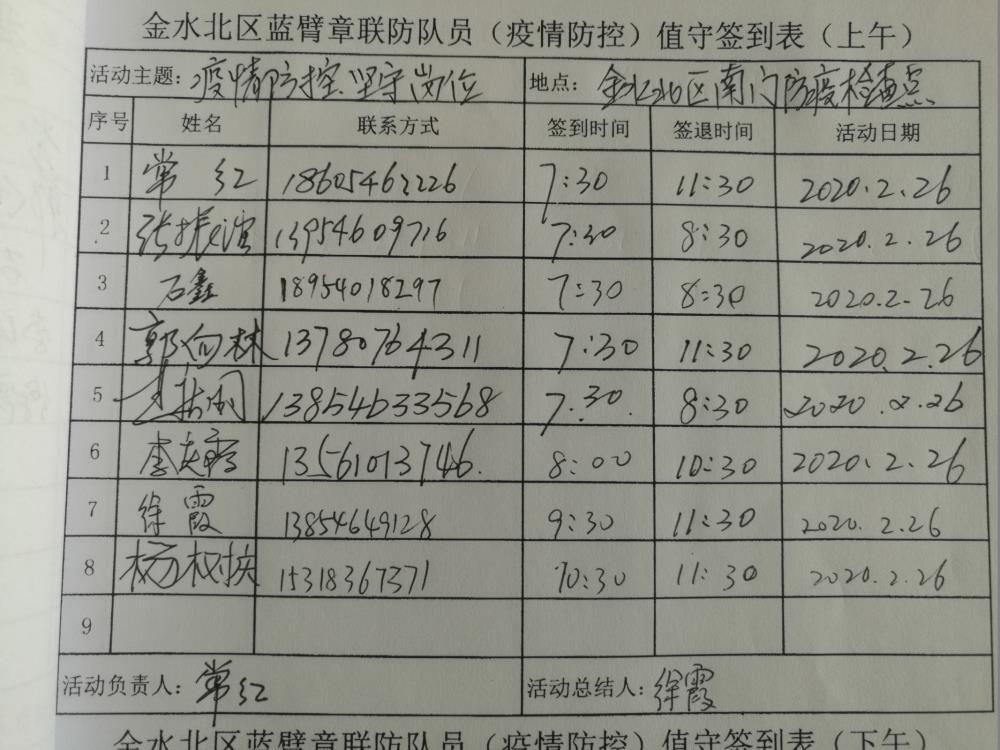 金水北区蓝臂章联防队员（疫情防控）值守签到表（上午）
活动主题：疫情防控 坚守岗位 地点：金水北区南门防疫检查点
序号 姓名 联系方式 签到时间 签退时间 活动日期
1 常红 18605462226 7:30 11:30 2020.2.26
2 张振滨 13954609716 7:30 8:30 2020.2.26
3 石鑫 18954018297 7:30 8:30 2020.2.26
4 郭向林 13780764311 7:30 11:30 2020.2.26
5 13854633568 7.30. 8:30 2020.2.26
6 李庆雪 13561013746. 8:00 10:30 2020.2.26
7 徐霞 13854649128 9:30 11:30 2020.2.26
8 杨树 15318367371 10:30 11:30 2020.2.26
9
活动负责人：常红 活动总结人：徐霞
金水北区蓝臂章联防队员（疫情防控）值守签到表（下午）